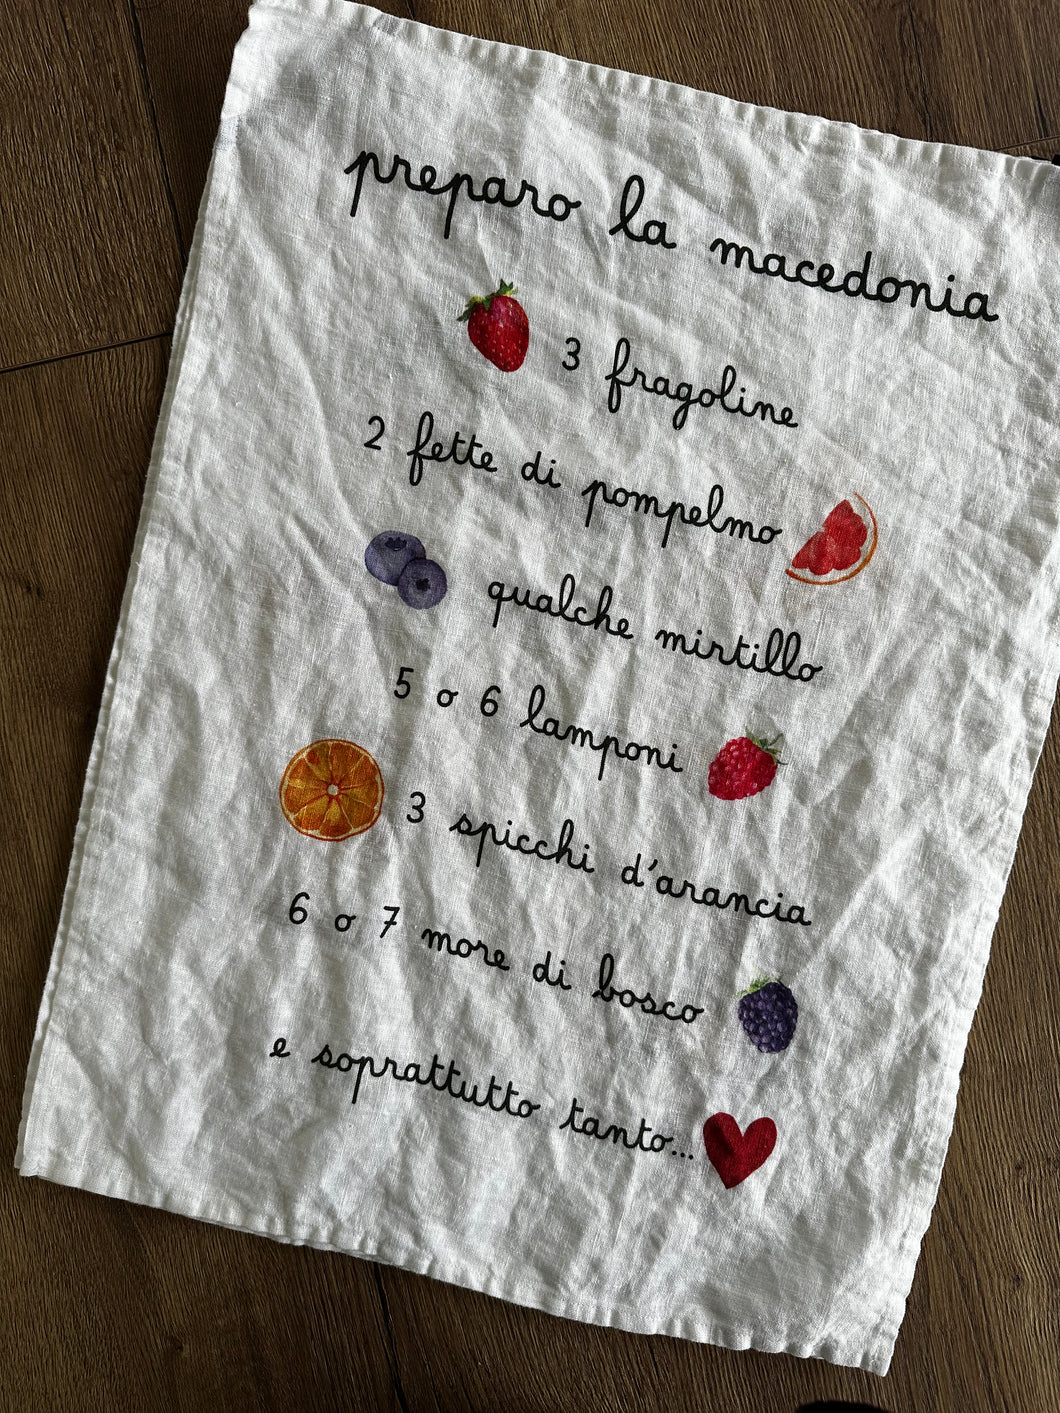 preparo la macedonia
3 fragoline
2 fette di pompelmo
qualche mirtillo
5 o 6 lamponi
3 spicchi d'arancia
6 o 7 more di bosco
e soprattutto tanto...